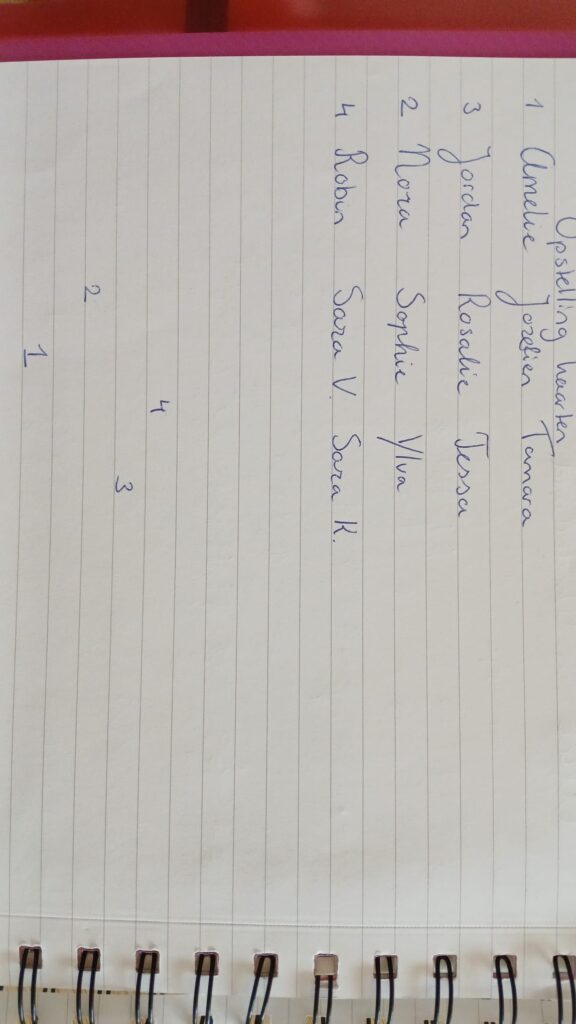 Opstelling kaarten
1 Amelie Jozefien Tamara
3 Jordan Rosalie Tessa
2 Nora Sophie Ylva
4 Robin Sara V. Sara K.
4
3
2
1